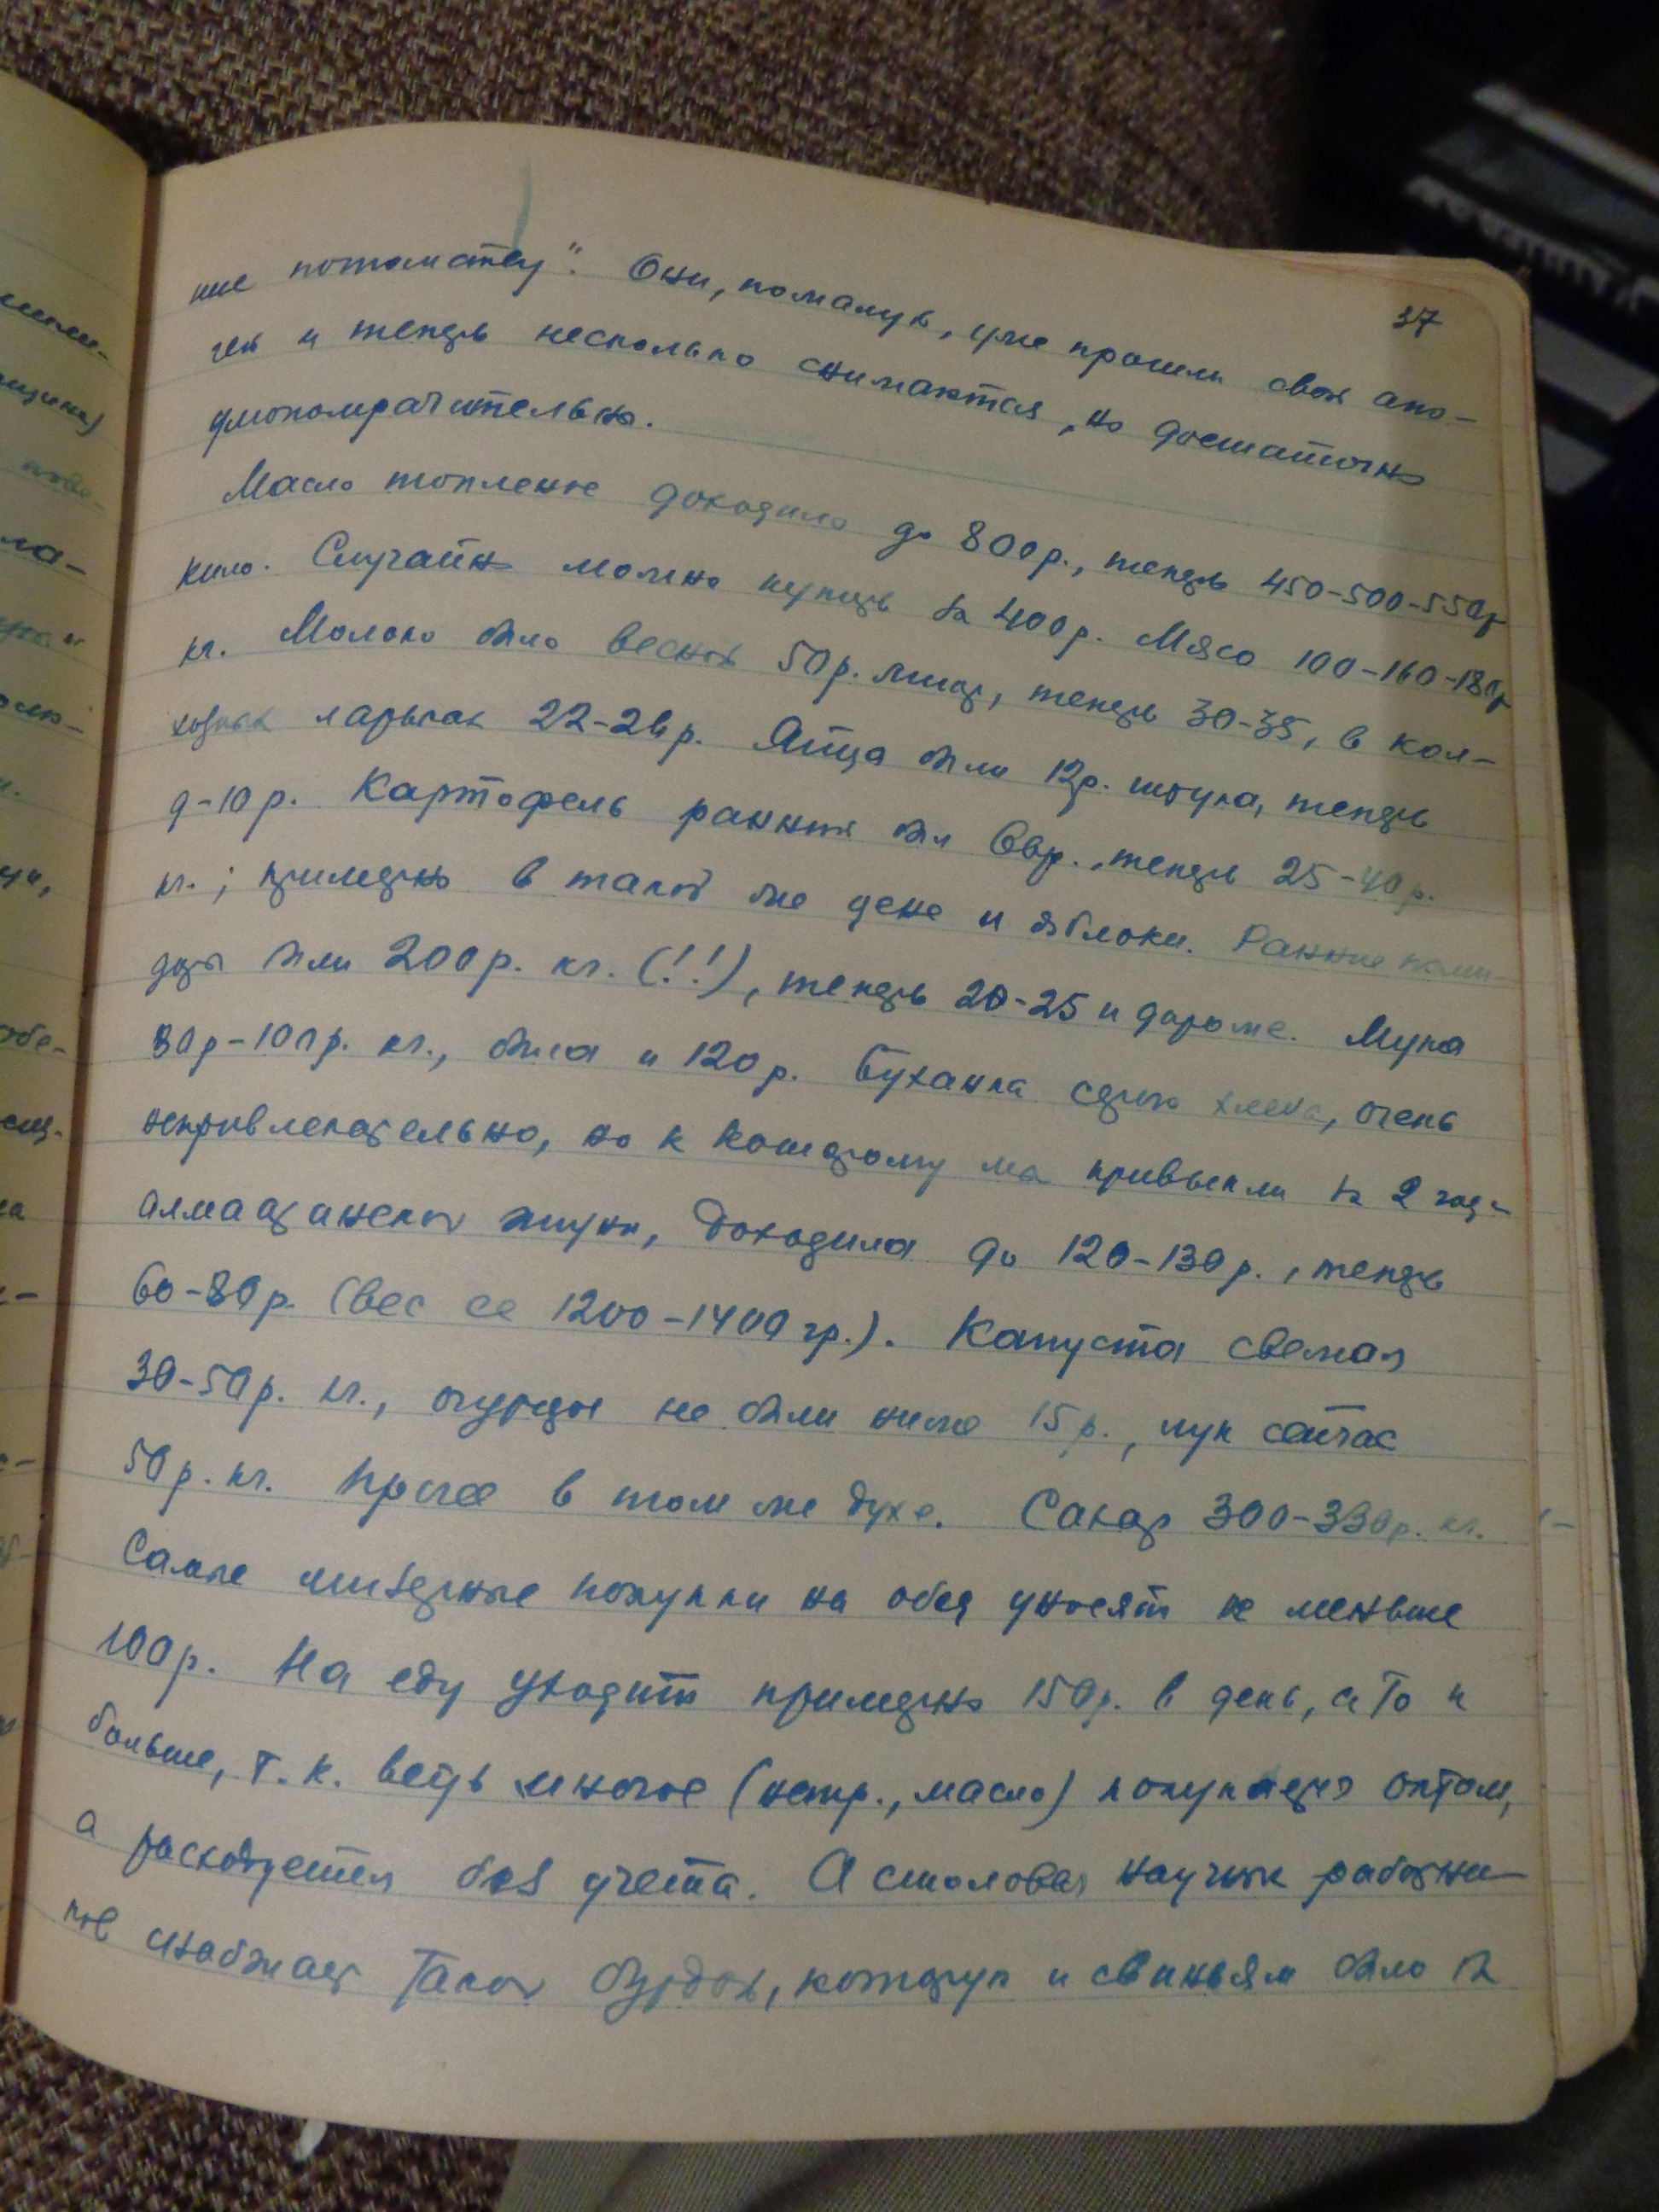 37
ние потомству". Они, пожалуй, уже прошли свой апо-
гей и теперь несколько снижаются, но достаточно
умопомрачительны.
Масло топленое доходило до 800р., теперь 450-500-550р
кило. Случайно можно купить за 400р. Мясо 100-160-180р
кг. Молоко было весной 50р. литр, теперь 30-35, в кол-
хозных ларьках 22-26р. Яйца были 12р. штука, теперь
9-10р. Картофель ранний был 66р., теперь 25-40р.
кг.; примерно в такой же цене и яблоки. Ранние поми-
доры были 200р. кг. (!!), теперь 20-25 и дороже. Мука
80р-100р. кг., была и 120р. Буханка серого хлеба, очень
непривлекательно, но к которому мы привыкли за 2 года
алмаатинской жизни, доходила до 120-130р., теперь
60-80р. (вес ее 1200-1400гр.). Капуста свежая
30-50р. кг., огурцы не были ниже 15р., лук сейчас
50р. кг. Прочее в том же духе. Сахар 300-330р. кг.
Самые мизерные покупки на обед уносят не меньше
100р. На еду уходит примерно 150р. в день, а то и
больше, т.к. ведь многое (напр., масло) покупается оптом,
а расходуется без учета. А столовая научных работни-
ков снабжает такой бурдой, которую и свиньям было бы